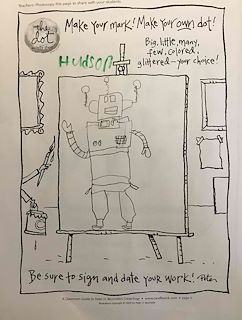 Teachers: Photocopy this page to share with your students.
the dot
Make your mark! Make your own dot!
Big, little, many,
few, colored,
glittered—your choice!
Hudson
Be sure to sign and date your work!
A Classroom Guide to Peter H. Reynolds's Creatrilogy • www.candlewick.com • page